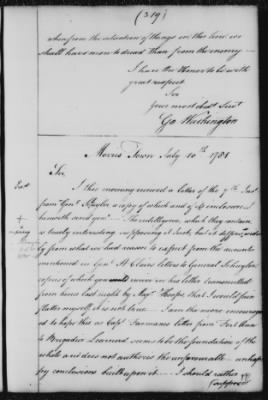 (319)
when from the situation of things in that line we
shall have more to dread than from the enemy —
I have the Honor to be with
great respect
Sir
Your most obedt Servt
Go Washington
Morris Town July 10th 1781
Sir
I this morning received a letter of the 9th Inst
from Genl Schuyler a copy of which and of its enclosure I
herewith and you The intelligence which they contain
is truly interesting supposing it just, but is different
ly from what we had reason to expect from the accounts
mentioned in Genl St Clairs letters to General Schuyler
copies of which you would receive in his letter transmitted
from hence last night by Majr Troupe that I would fain
flatter myself it is not true — I am the more encourag
ed to hope this as Capt letter from Fort Ann
to Brigadier Learned seems to be the foundation of the
whole and does not authorize the unfavorable unhap
py conclusions built upon it — I should rather